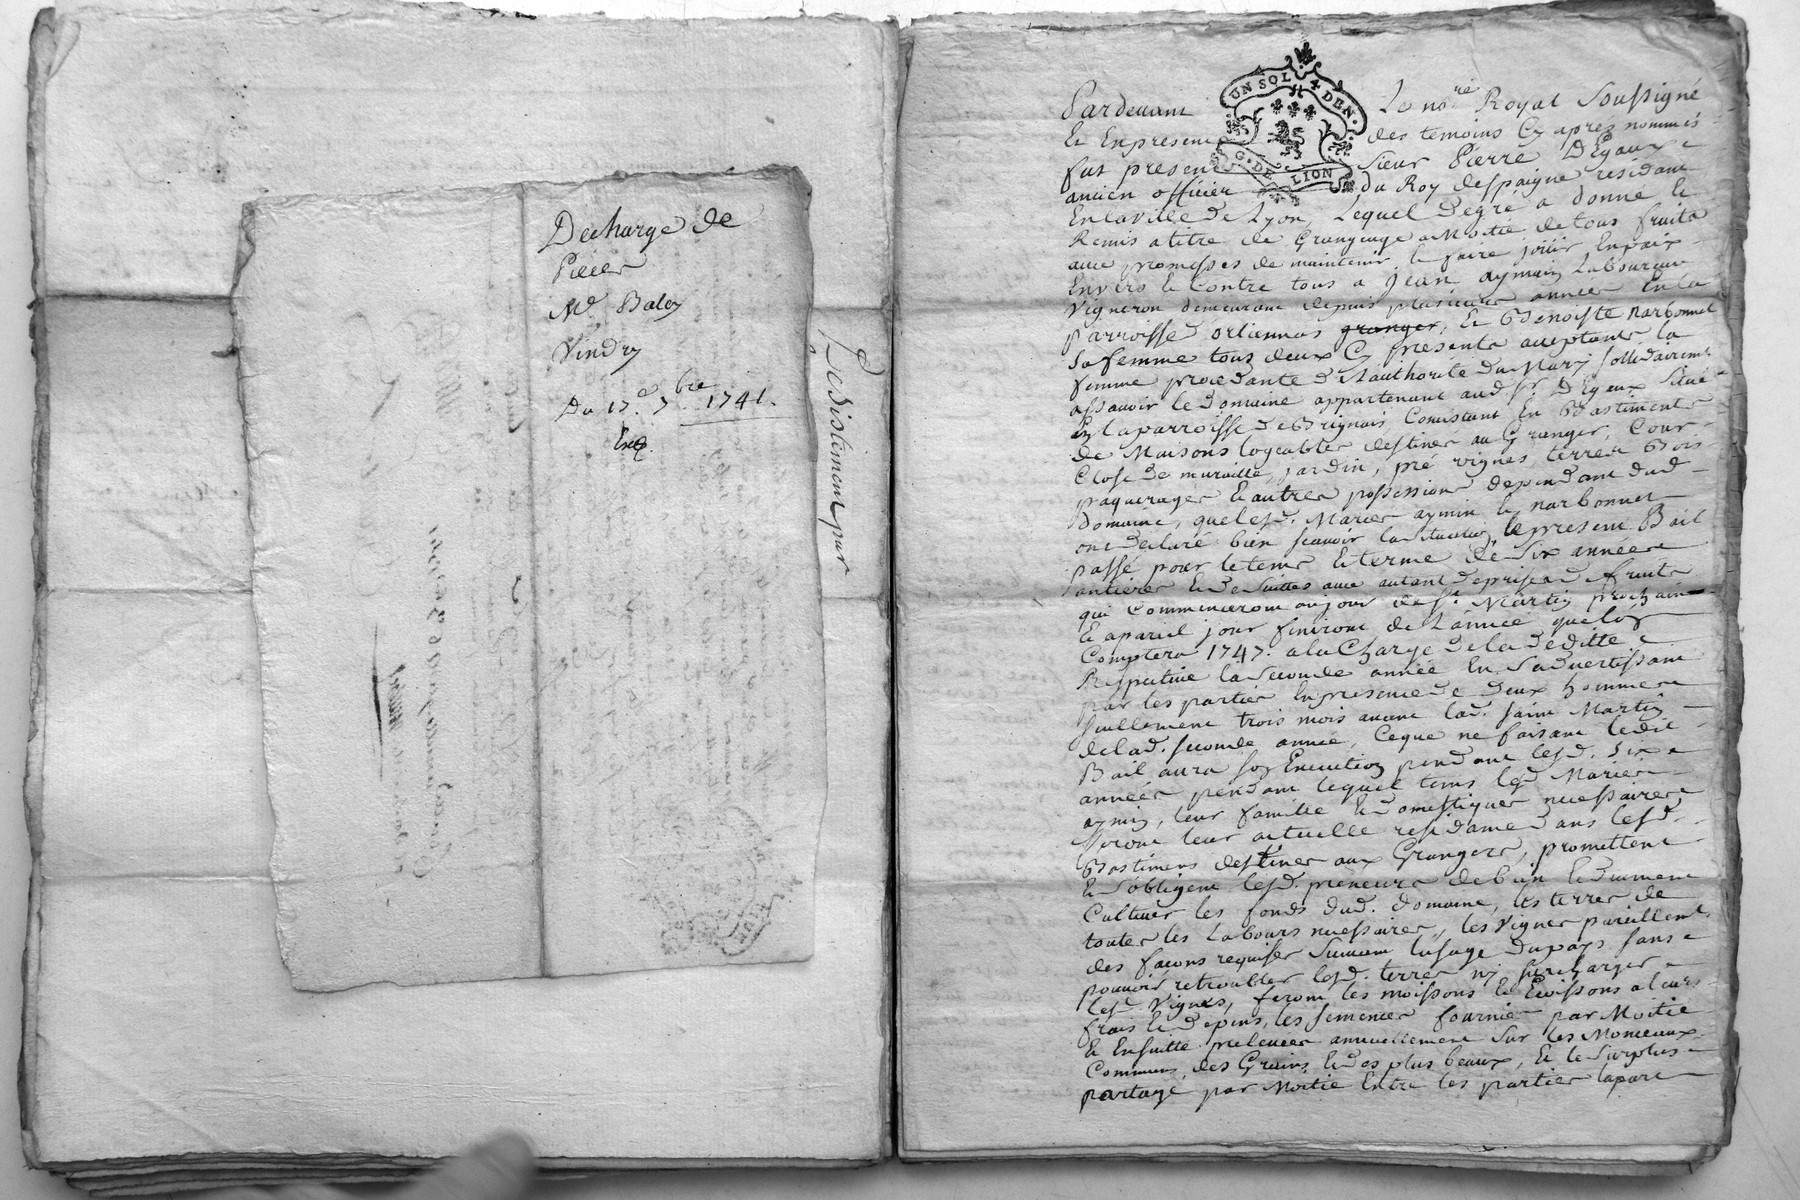 Decharge de
Pieces
Mr Baley
Vindry
Du 17e 7bre 1741.
Exq
Le disistement par
UN SOL 4 DEN.
G. DE LION
Pardevant Le nore Royal Soussigné
Et En presence des temoins Cy apres nommés
fut present sieur Pierre DEgaux
ancien officier du Roy despaigne residant
En la ville De Lyon, Lequel De gré a donné et
Remis a titre de Grangeage a Moitié de tous fruits
avec promesses de maintenir et faire joüir En paix
Envers et Contre tous a Jean aymin Laboureur
Vigneron demeurant depuis plusieurs années En la
parroisse D orliennas granger, et Benoiste narbonnet
sa femme tous deux Cy presents aceptants la
femme procedante De l'authorité du Mary solidairement
assavoir le Domaine appartenant aud sr DEgaux situé
En la parroisse De Brignais, Consistant En Bastiments
de Maisons logeables destinés au Granger, Cour
Close De muraille, jardin, pré vignes terres Bois
paquerages et autres possessions dependant dud
Domaine, que lesd. Mariés aymin et narbonnet
ont Declaré bien scavoir la situation, le present Bail
passé pour le tems et terme De Six années
antieres et De suittes avec autant De prises De fruits
qui Commenceront au jour de st Martin prochain
et a pareil jour finiront de L'année que l'on
Comptera 1747. a la Charge De la De ditte
Respective la seconde année En s'advertissant
par les parties En presence De deux hommes
seullement trois mois avant lad. saint Martin
de lad. seconde année, Ce que ne faisant ledit
Bail aura son Execution pendant lesd. six
années, pendant lequel tems lesd Mariés
aymin, leur famille et Domestiques necessaires
seront leur actuelle residance Dans lesd.
Bastimens destinés aux Grangers, promettent
et s'obligent lesd. preneurs de bien et Duement
Cultiver les fonds dud. Domaine, les terres de
toutes les Labours necessaires, les vignes pareillemt
des façons requises suivant l'usage Du pays sans
pouvoir retroubler lesd. terres ny surcharger
lesd Vignes, feront les moissons et Ecossons a leurs
frais et Depens, les semences fournies par Moitié
et Ensuitte prelevées annuellement sur les Monceaux
Communs, des Grains et des plus beaux, et le surplus
partagé par Moitié Entre les parties la part